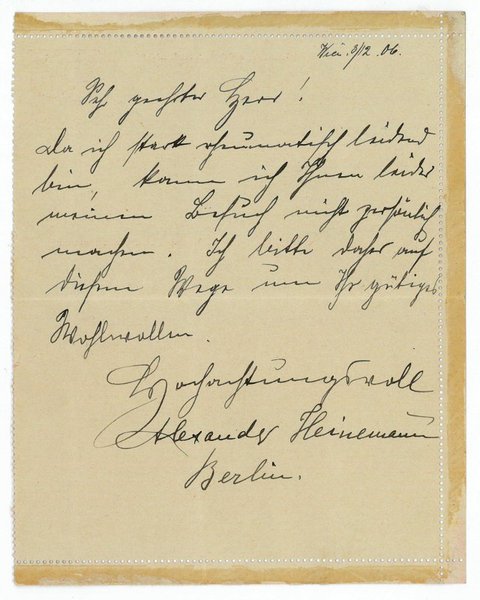 Wien 3/12 06.
Sehr geehrter Herr!
Da ich stark rheumatisch leidend
bin, kann ich Ihnen leider
meinen Besuch nicht persönlich
machen. Ich bitte daher auf
diesem Wege um Ihr gütiges
Wohlwollen.
Hochachtungsvoll
Alexander Heinemann
Berlin.